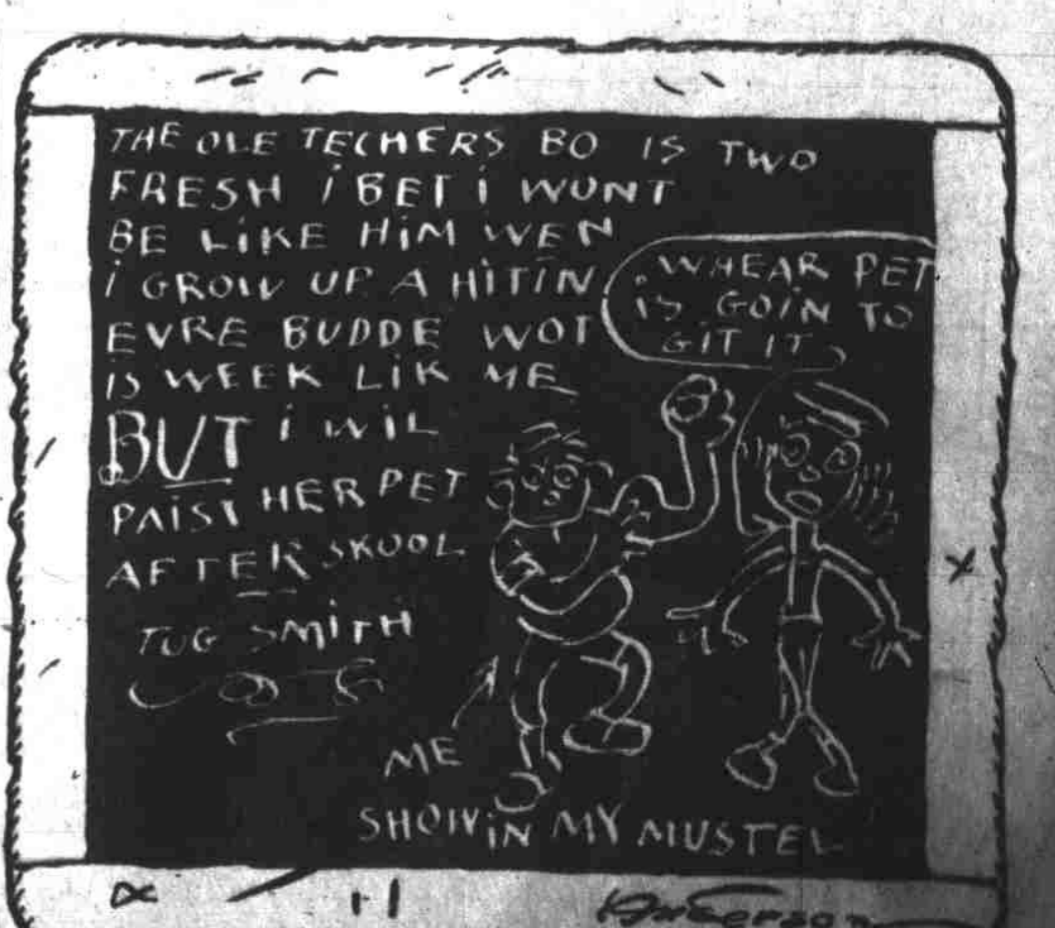 THE OLE TECHERS BO IS TWO
FRESH i BET i WUNT
BE LiKE HiM WEN
i GROW UP A HiTiN
EVRE BUDDE WOT
iS WEEK LiK ME
BUT i WiL
PAiST HER PET
AFTER SKOOL
TUG SMiTH
WHEAR PET
iS GOiN TO
GiT IT
ME
SHOWiN MY MUSTEL